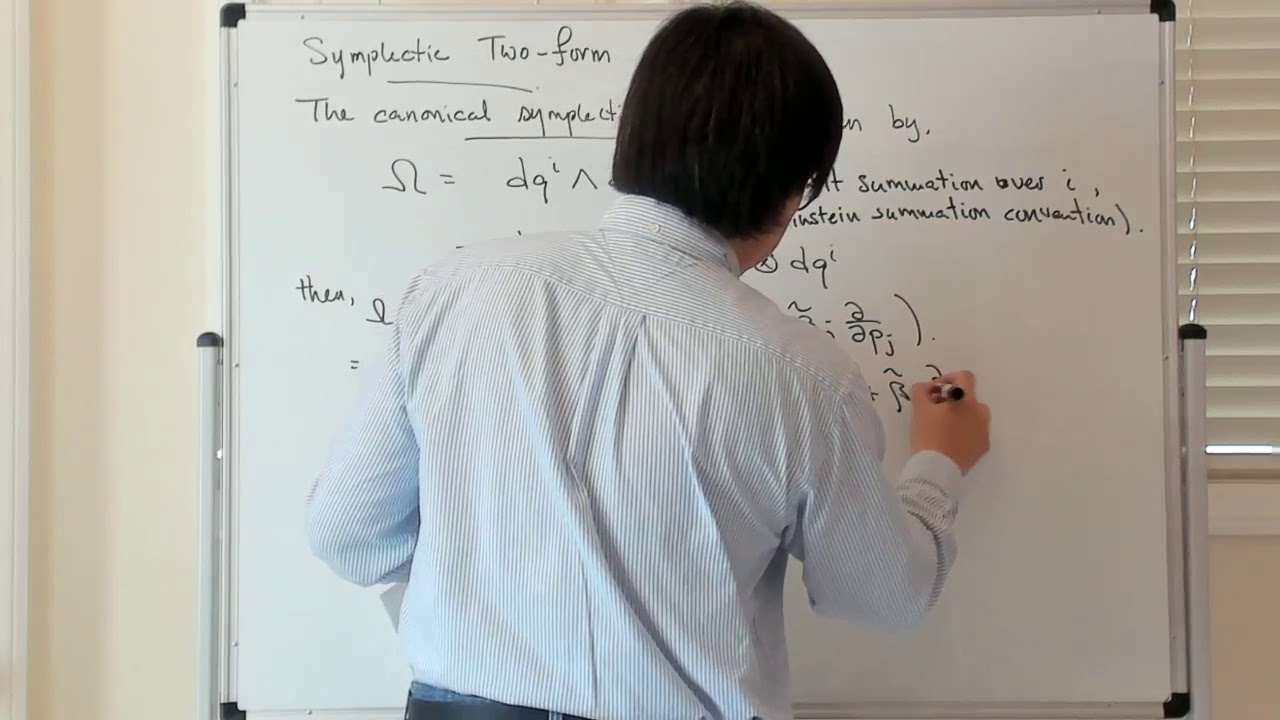 Symplectic Two-form
The canonical symplecti by.
Ω = dqⁱ ∧ summation over i,
instein summation convention).
⊗ dqⁱ
then, ∂/∂pⱼ ).
= + β̃ ∂